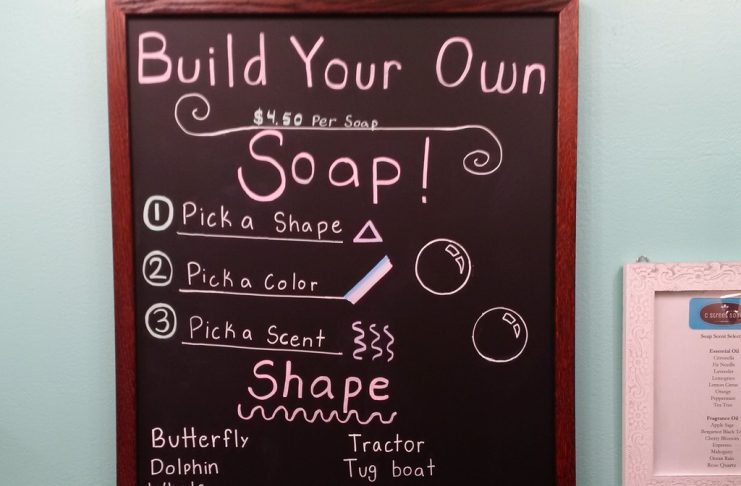 Build Your Own
$4.50 Per Soap
Soap!
1 Pick a Shape
2 Pick a Color
3 Pick a Scent
Shape
Butterfly
Dolphin
Tractor
Tug boat
c street soap
Soap Scent Select
Essential Oil
Citronella
Fir Needle
Lavender
Lemongrass
Orange
Peppermint
Tea Tree
Fragrance Oil
Apple Sage
Cherry Blossom
Espresso
Mahogany
Ocean Rain
Rose Quartz